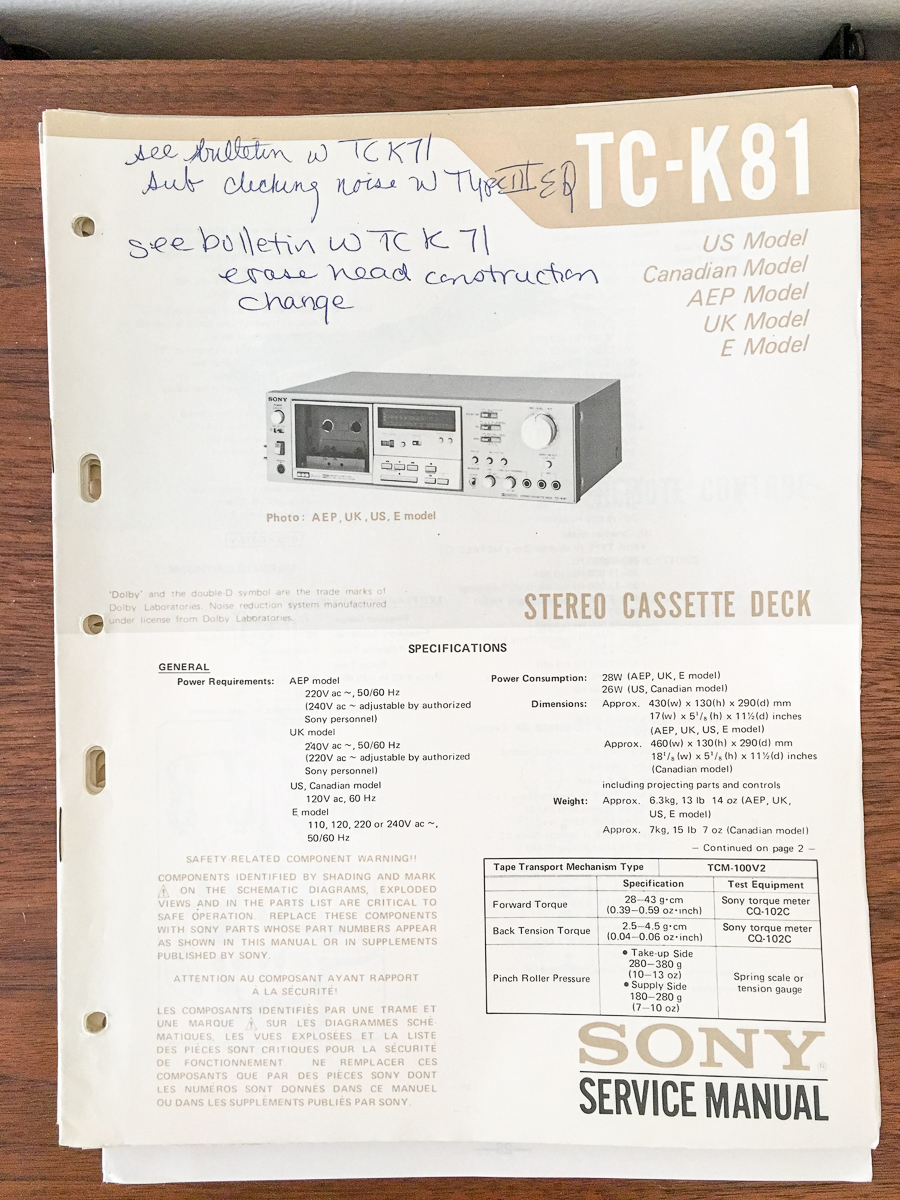 see bulletin w TC K71
sub clicking noise w Type III EQ
see bulletin w TC K 71
erase head construction
change
TC-K81
US Model
Canadian Model
AEP Model
UK Model
E Model
SONY
Photo: AEP, UK, US, E model
'Dolby' and the double-D symbol are the trade marks of
Dolby Laboratories. Noise reduction system manufactured
under license from Dolby Laboratories.
STEREO CASSETTE DECK
SPECIFICATIONS
GENERAL
Power Requirements: AEP model
220V ac ~, 50/60 Hz
(240V ac ~ adjustable by authorized
Sony personnel)
UK model
240V ac ~, 50/60 Hz
(220V ac ~ adjustable by authorized
Sony personnel)
US, Canadian model
120V ac, 60 Hz
E model
110, 120, 220 or 240V ac ~,
50/60 Hz
Power Consumption: 28W (AEP, UK, E model)
26W (US, Canadian model)
Dimensions: Approx. 430(w) x 130(h) x 290(d) mm
17(w) x 5 1/8 (h) x 11½(d) inches
(AEP, UK, US, E model)
Approx. 460(w) x 130(h) x 290(d) mm
18 1/8 (w) x 5 1/8 (h) x 11½(d) inches
(Canadian model)
including projecting parts and controls
Weight: Approx. 6.3kg, 13 lb 14 oz (AEP, UK,
US, E model)
Approx. 7kg, 15 lb 7 oz (Canadian model)
— Continued on page 2 —
SAFETY-RELATED COMPONENT WARNING!!
COMPONENTS IDENTIFIED BY SHADING AND MARK
⚠ ON THE SCHEMATIC DIAGRAMS, EXPLODED
VIEWS AND IN THE PARTS LIST ARE CRITICAL TO
SAFE OPERATION. REPLACE THESE COMPONENTS
WITH SONY PARTS WHOSE PART NUMBERS APPEAR
AS SHOWN IN THIS MANUAL OR IN SUPPLEMENTS
PUBLISHED BY SONY.
ATTENTION AU COMPOSANT AYANT RAPPORT
À LA SÉCURITÉ!
LES COMPOSANTS IDENTIFIÉS PAR UNE TRAME ET
UNE MARQUE ⚠ SUR LES DIAGRAMMES SCHÉ-
MATIQUES, LES VUES EXPLOSÉES ET LA LISTE
DES PIÈCES SONT CRITIQUES POUR LA SÉCURITÉ
DE FONCTIONNEMENT. NE REMPLACER CES
COMPOSANTS QUE PAR DES PIÈCES SONY DONT
LES NUMÉROS SONT DONNÉS DANS CE MANUEL
OU DANS LES SUPPLÉMENTS PUBLIÉS PAR SONY.
Tape Transport Mechanism Type TCM-100V2
Specification Test Equipment
Forward Torque 28—43 g·cm
(0.39—0.59 oz·inch) Sony torque meter
CQ-102C
Back Tension Torque 2.5—4.5 g·cm
(0.04—0.06 oz·inch) Sony torque meter
CQ-102C
Pinch Roller Pressure • Take-up Side
280—380 g
(10—13 oz)
• Supply Side
180—280 g
(7—10 oz) Spring scale or
tension gauge
SONY®
SERVICE MANUAL